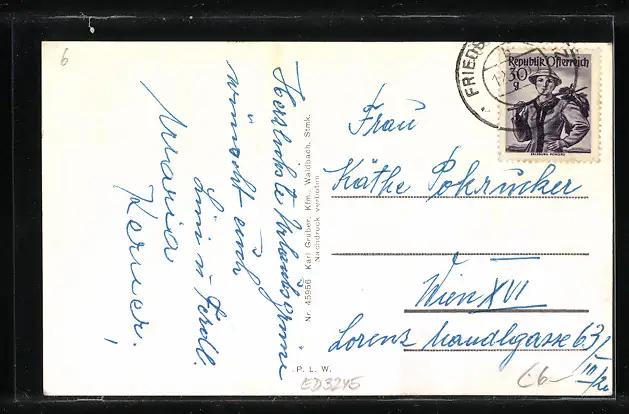 6
Herzlichste Urlaubsgrüße
wünscht euch
Lini u. Ferdl.
Maria
Kerner.
Nr. 45956 Karl Gruber, Kfm., Waidbach, Stmk.
Nachdruck verboten
P. L. W.
ED3245
FRIEDB
Republik Österreich
30
g
Frau
Käthe Pokrucker
Wien XVI
Lorenz Mandlgasse 63/
III/20